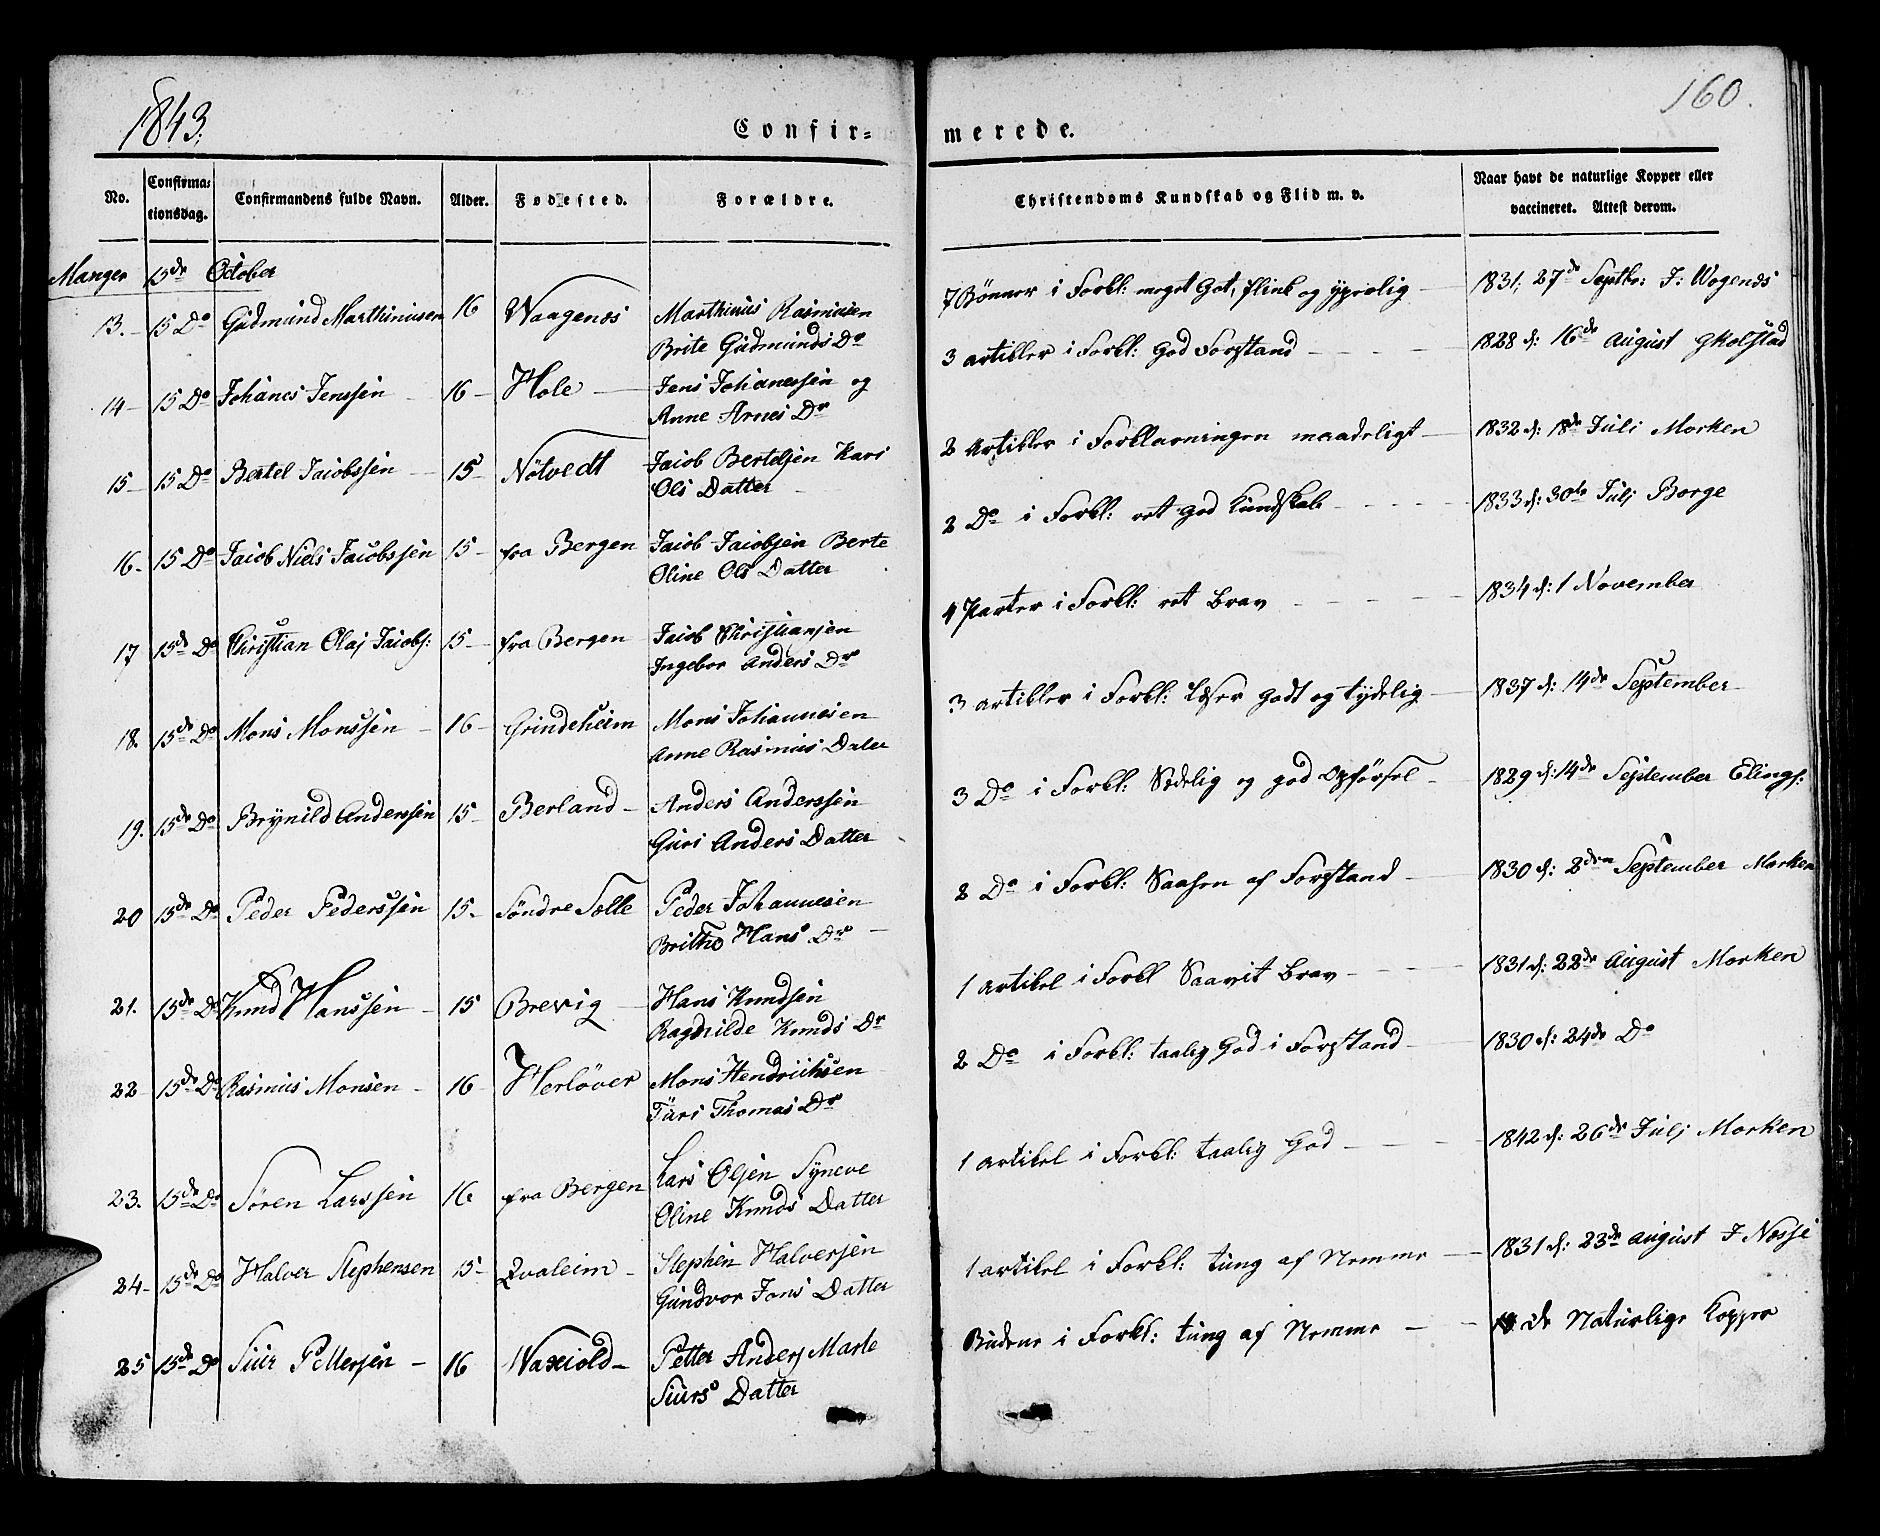 1843.
160.
Confir-
merede.
No.
Confirma-
tionsdag.
Confirmandens fulde Navn.
Alder.
Fødested.
Forældre.
Christendoms Kundskab og Flid m. v.
Naar havt de naturlige Kopper eller
vaccineret. Attest derom.
Manger 15de October
13. 15 Do Gudmund Marthinusen 16 Waagenes Marthinus Rasmusen
Brite Gudmunds Dr
7 Bønner i Forkl: meget Got, flink og 1831, 27de Septbr: J: Wogenes
14 15 Do Johanes Jenssen 16 Hole Jens Johanessen og
Anne Arnes Dr
3 artikler i Forkl: God Forstand 1828 d: 16de August
15 15 Do Bertel Jacobssen 15 Nötvedt Jacob Bertelsen Kari
Ols Datter
2 Artikler i Forklaringen maadeligt 1832 d: 18de Juli Morken
16. 15 Do Jacob Niels Jacobssen 15 fra Bergen Jacob Jacobsen Berte
Oline Ols Datter
2 Do i Forkl: ret god Kundskab 1833 d: 30te Julj Borge
17 15de Do Christian Olaj Jacobs: 15 fra Bergen Jacob Christiansen
Ingebor Anders Dr
4 Parter i Forkl: ret brav 1834 d: 1 November
18. 15de Do Mons Monssen 16 Grindeheim Mons Johannesen
Anne Rasmus Dater
3 artikler i Forkl: Læser godt og tydelig 1837 d: 14de September
19. 15de Do Brynild Anderssen 15 Berland Anders Anderssen
Guri Anders Datter
3 Do i Forkl: Sædelig og god Opførsel 1829 d: 14de September Elings:
20 15de Do Peder Pederssen 15 Söndre Sætte Peder Johannesen
Brithe Hans Dr
2 Do i Forkl: Saasen af Forstand 1830 d: 2den September Morken
21. 15de Do Knud Hanssen 15 Brevig Hans Knudsen
Ragnilde Knuds Dr
1 artikel i Forkl Saavit brav 1831 d: 22de August Morken
22 15de Do Rasmus Monsen 16 Herlöver Mons Hendrichsen
Turi Thomas Dr
2 Do i Forkl: taalig God i Forstand 1830 d: 24de Do
23. 15de Do Sören Larssen 16 fra Bergen Lars Olsen Syneve
Oline Knuds Datter
1 artikel i Forkl: taalig God 1842 d: 26de Julj Morken
24 15de Do Halver Stephensen 15 Qvaleim Stephen Halversen
Gundvor Jons Datter
1 artikel i Forkl: tung af Nemme 1831 d: 23de August J Nesse
25 15de Do Siur Pettersen 16 Waxiold Petter Anders Marte
Siurs Datter
Budene i Forkl: tung af Nemme de Naturlige Kopper